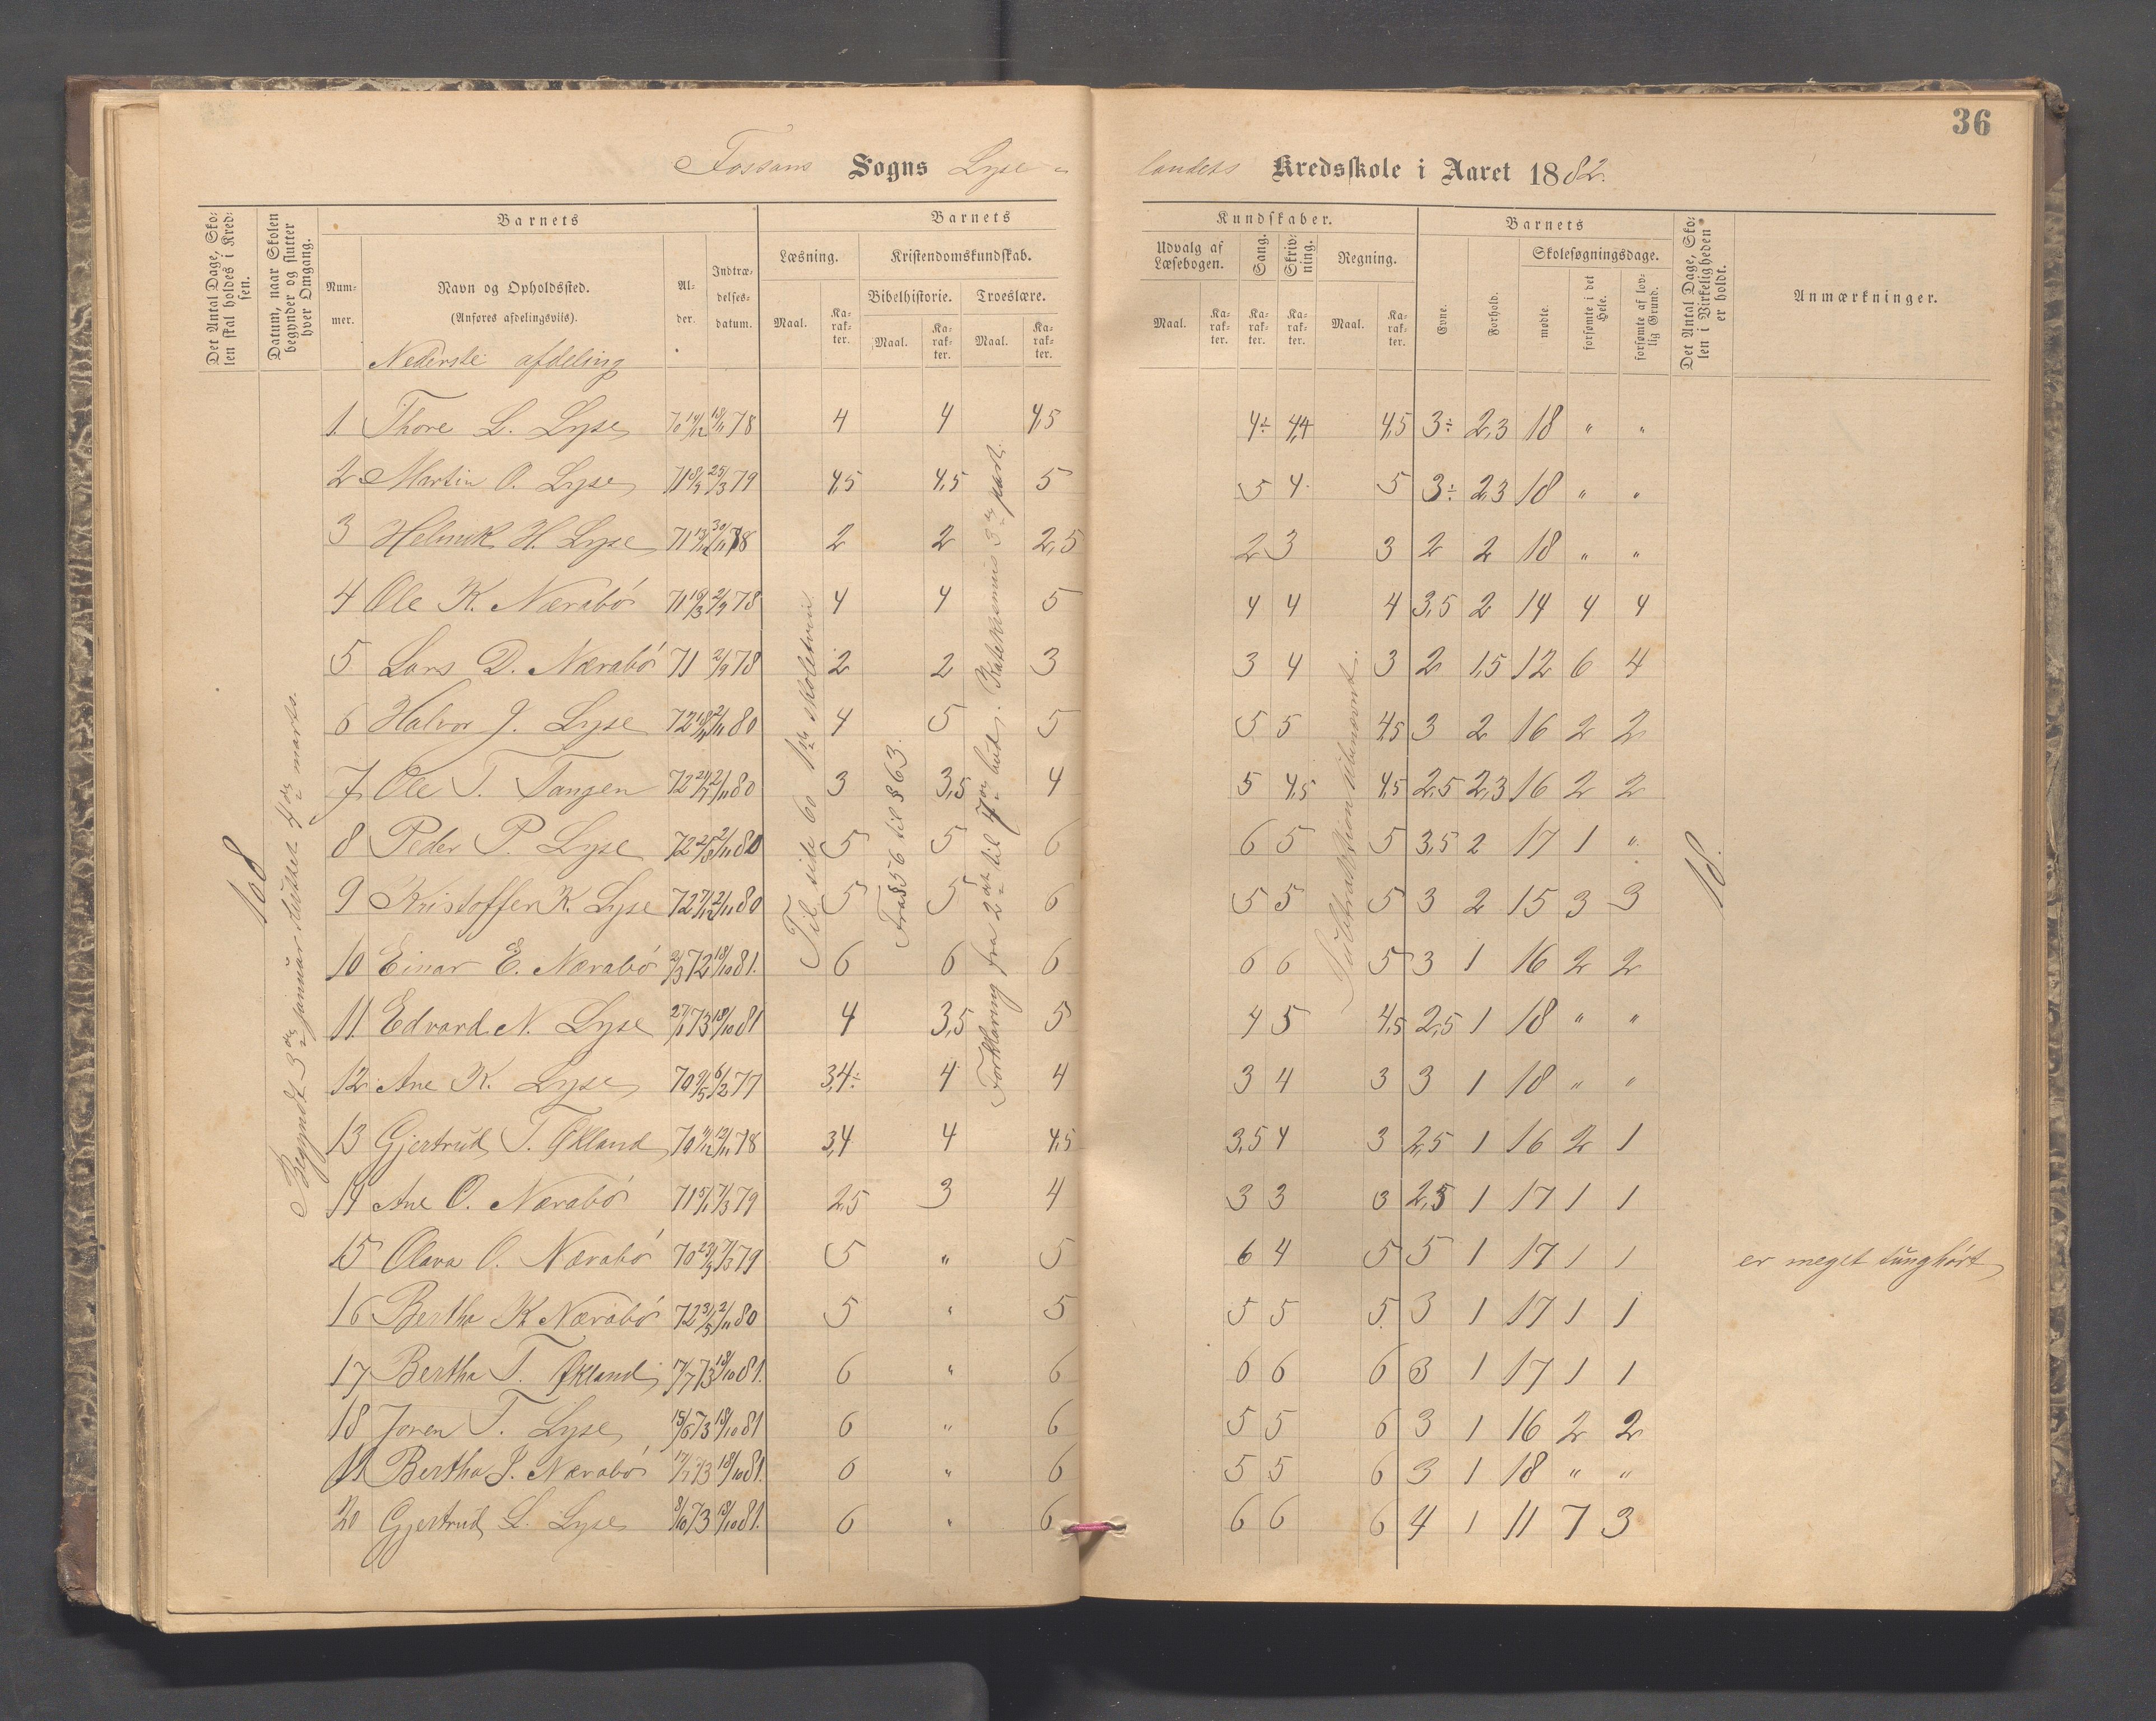 36
Fossans Sogns Lyse-
landets Kredsskole i Aaret 1882.
Det Antal Dage, Sko-
len skal holdes i Kred-
sen.
Datum, naar Skolen
begynder og slutter
hver Omgang.
Barnets
Num-
mer.
Navn og Opholdssted.
(Anføres afdelingsviis).
Al-
der.
Indtræ-
delses-
datum.
Barnets
Læsning.
Maal.
Ka-
rak-
ter.
Kristendomskundskab.
Bibelhistorie.
Maal.
Ka-
rak-
ter.
Troeslære.
Maal.
Ka-
rak-
ter.
Kundskaber.
Udvalg af
Læsebogen.
Maal.
Ka-
rak-
ter.
Sang.
Ka-
rak-
ter.
Skriv-
ning.
Ka-
rak-
ter.
Regning.
Maal.
Ka-
rak-
ter.
Barnets
Evne.
Forhold.
Skolesøgningsdage.
mødte.
forsømte i det
Hele.
forsømte af lov-
lig Grund.
Det Antal Dage, Sko-
len i Virkeligheden
er holdt.
Anmærkninger.
Nederste afdeling
108
Begyndt 3de januar sluttet 4de marts.
Til side 60
Fra § 56 til § 63.
Forklaring fra 2det til 4de bud. Katekismus 3de part.
18.
1 Thore L. Lyse 78 4 4 4,5 4÷ 4,4 4,5 3÷ 2,3 18 " "
2 Martin O. Lyse 79 4,5 4,5 5 5 4 5 3÷ 2,3 18 " "
3 H. Lyse 78 2 2 2,5 2 3 3 2 2 18 " "
4 Ole K. Nærabø 78 4 4 5 4 4 4 3,5 2 14 4 4
5 Lars D. Nærabø 71 2/9 78 2 2 3 3 4 3 2 1,5 12 6 4
6 Halvor J. Lyse 2/11 80 4 5 5 5 5 4,5 3 2 16 2 2
7 Ole T. Tangen 2/11 80 3 3,5 4 5 4,5 4,5 2,5 2,3 16 2 2
8 Peder P. Lyse 2/11 80 5 5 6 6 5 5 3,5 2 17 1 "
9 Kristoffer K. Lyse 2/11 80 5 5 6 5 5 5 3 2 15 3 3
10 Einar E. Nærabø 2/3 72 18/10 81. 6 6 6 6 6 5 3 1 16 2 2
11 Edvard N. Lyse 27/1 73 18/10 81 4 3,5 5 4 5 4,5 2,5 1 18 " "
12 Ane K. Lyse 6/2 77 3,4÷ 4 4 3 4 3 3 1 18 " "
13 Gjertrud T. Økland 12/11 78 3,4 4 4,5 3,5 4 3 2,5 1 16 2 1
14 Ane O. Nærabø 7/3 79 2,5 3 4 3 3 3 2,5 1 17 1 1
15 Olava O. Nærabø 7/3 79 5 " 5 6 4 5 5 1 17 1 1 er meget tunghørt
16 Bertha K Nærabø 2/11 80 5 " 5 5 5 5 3 1 17 1 1
17 Bertha T. Økland 73 18/10 81. 6 " 6 6 6 6 3 1 17 1 1
18 Joren T. Lyse 15/6 73 18/10 81 6 " 6 5 5 6 3 1 16 2 2
19 Bertha J. Nærabø 17/7 73 18/10 81. 6 " 6 5 5 6 3 1 18 " "
20 Gjertrud L. Lyse 8/10 73 18/10 81. 6 " 6 6 6 6 4 1 11 7 3